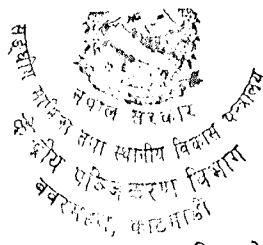 नेपाल सरकार
मामिला तथा स्थानीय विकास मन्त्रालय
केन्द्रीय पञ्जिकरण विभाग
बबरमहल, काठमाडौं